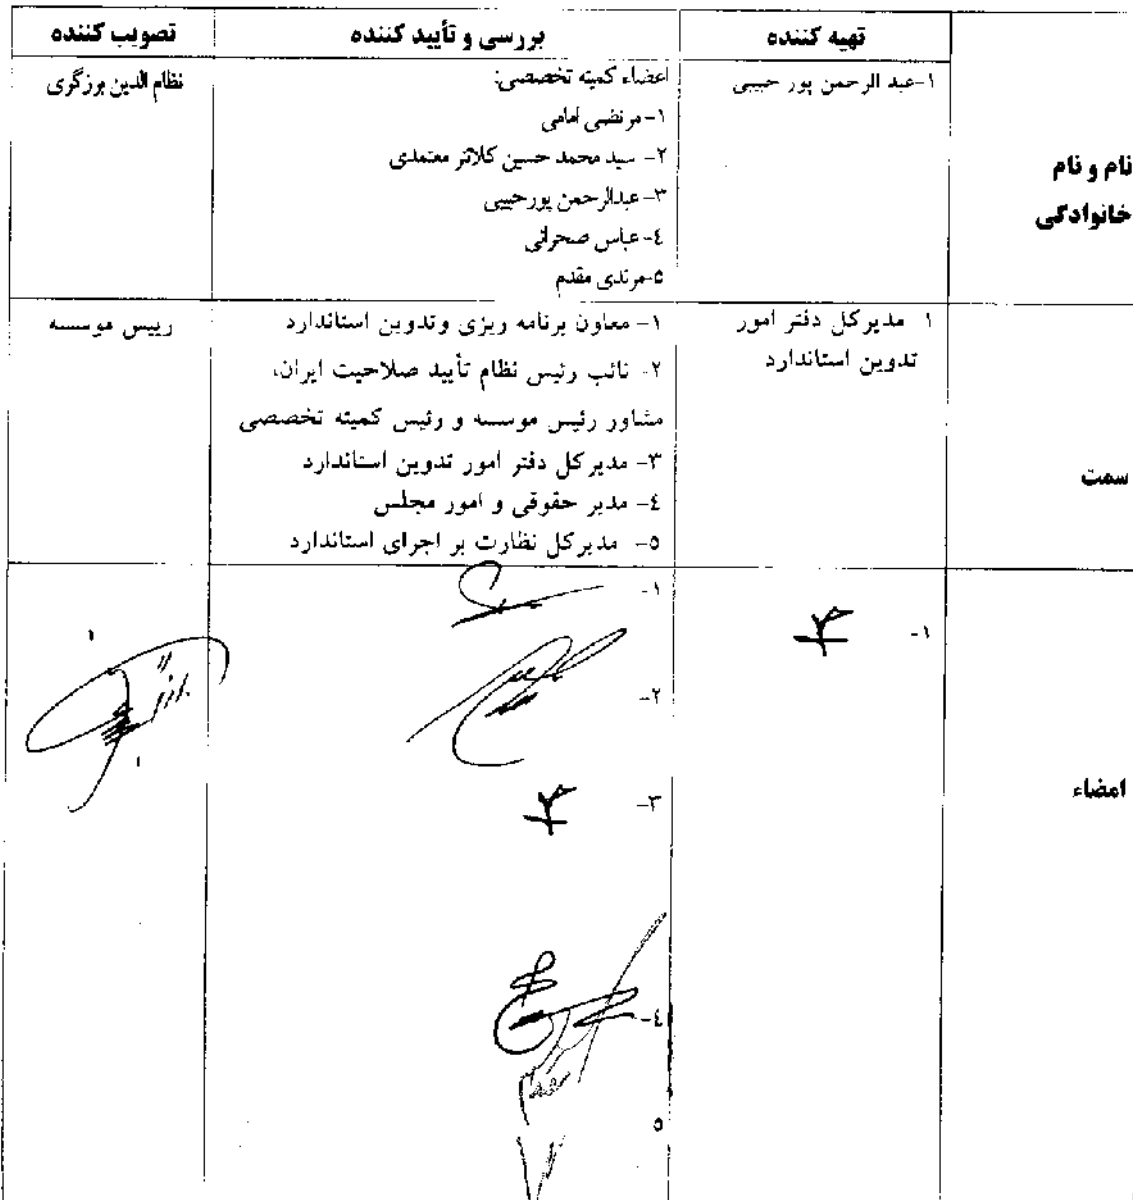 تهیه کننده
بررسی و تأیید کننده
تصویب کننده
نام و نام
خانوادگی
۱-عبد الرحمن پور حبیبی
اعضاء کمیته تخصصی:
۱-مرتضی امامی
۲- سید محمد حسین کلانتر معتمدی
۳-عبدالرحمن پورحبیبی
٤-عباس صحرائی
۵-مرندی مقدم
نظام الدین برزگری
سمت
۱ مدیرکل دفتر امور
تدوین استاندارد
۱- معاون برنامه ریزی وتدوین استاندارد
۲- نائب رئیس نظام تأیید صلاحیت ایران،
مشاور رئیس موسسه و رئیس کمیته تخصصی
۳- مدیرکل دفتر امور تدوین استاندارد
٤- مدیر حقوقی و امور مجلس
۵- مدیرکل نظارت بر اجرای استاندارد
رییس موسسه
امضاء
۱-
۱-
۲-
۳-
٤-
۵